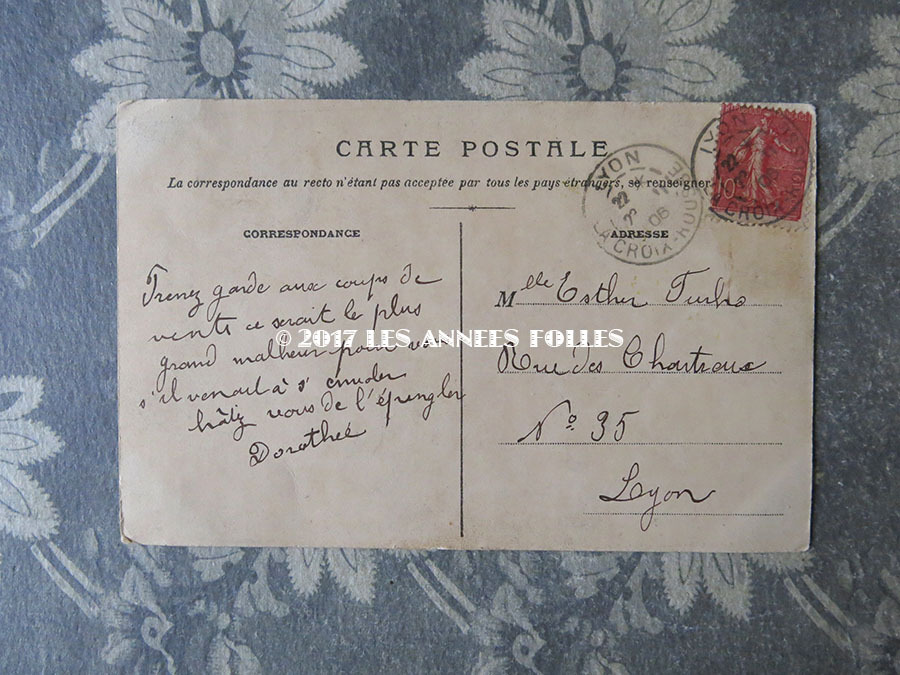 CARTE POSTALE
La correspondance au recto n'étant pas acceptée par tous les pays étrangers, se renseigner
CORRESPONDANCE
Prenez garde aux coups de
vents ce serait le plus
grand malheur pour
s'il venait à s'
hâtez vous de l'épingler
Dorothée
ADRESSE
Mlle Esther
Rue des Chartreux
No 35
Lyon
LYON
LA CROIX-ROUSSE
LYON
10
© 2017 LES ANNEES FOLLES